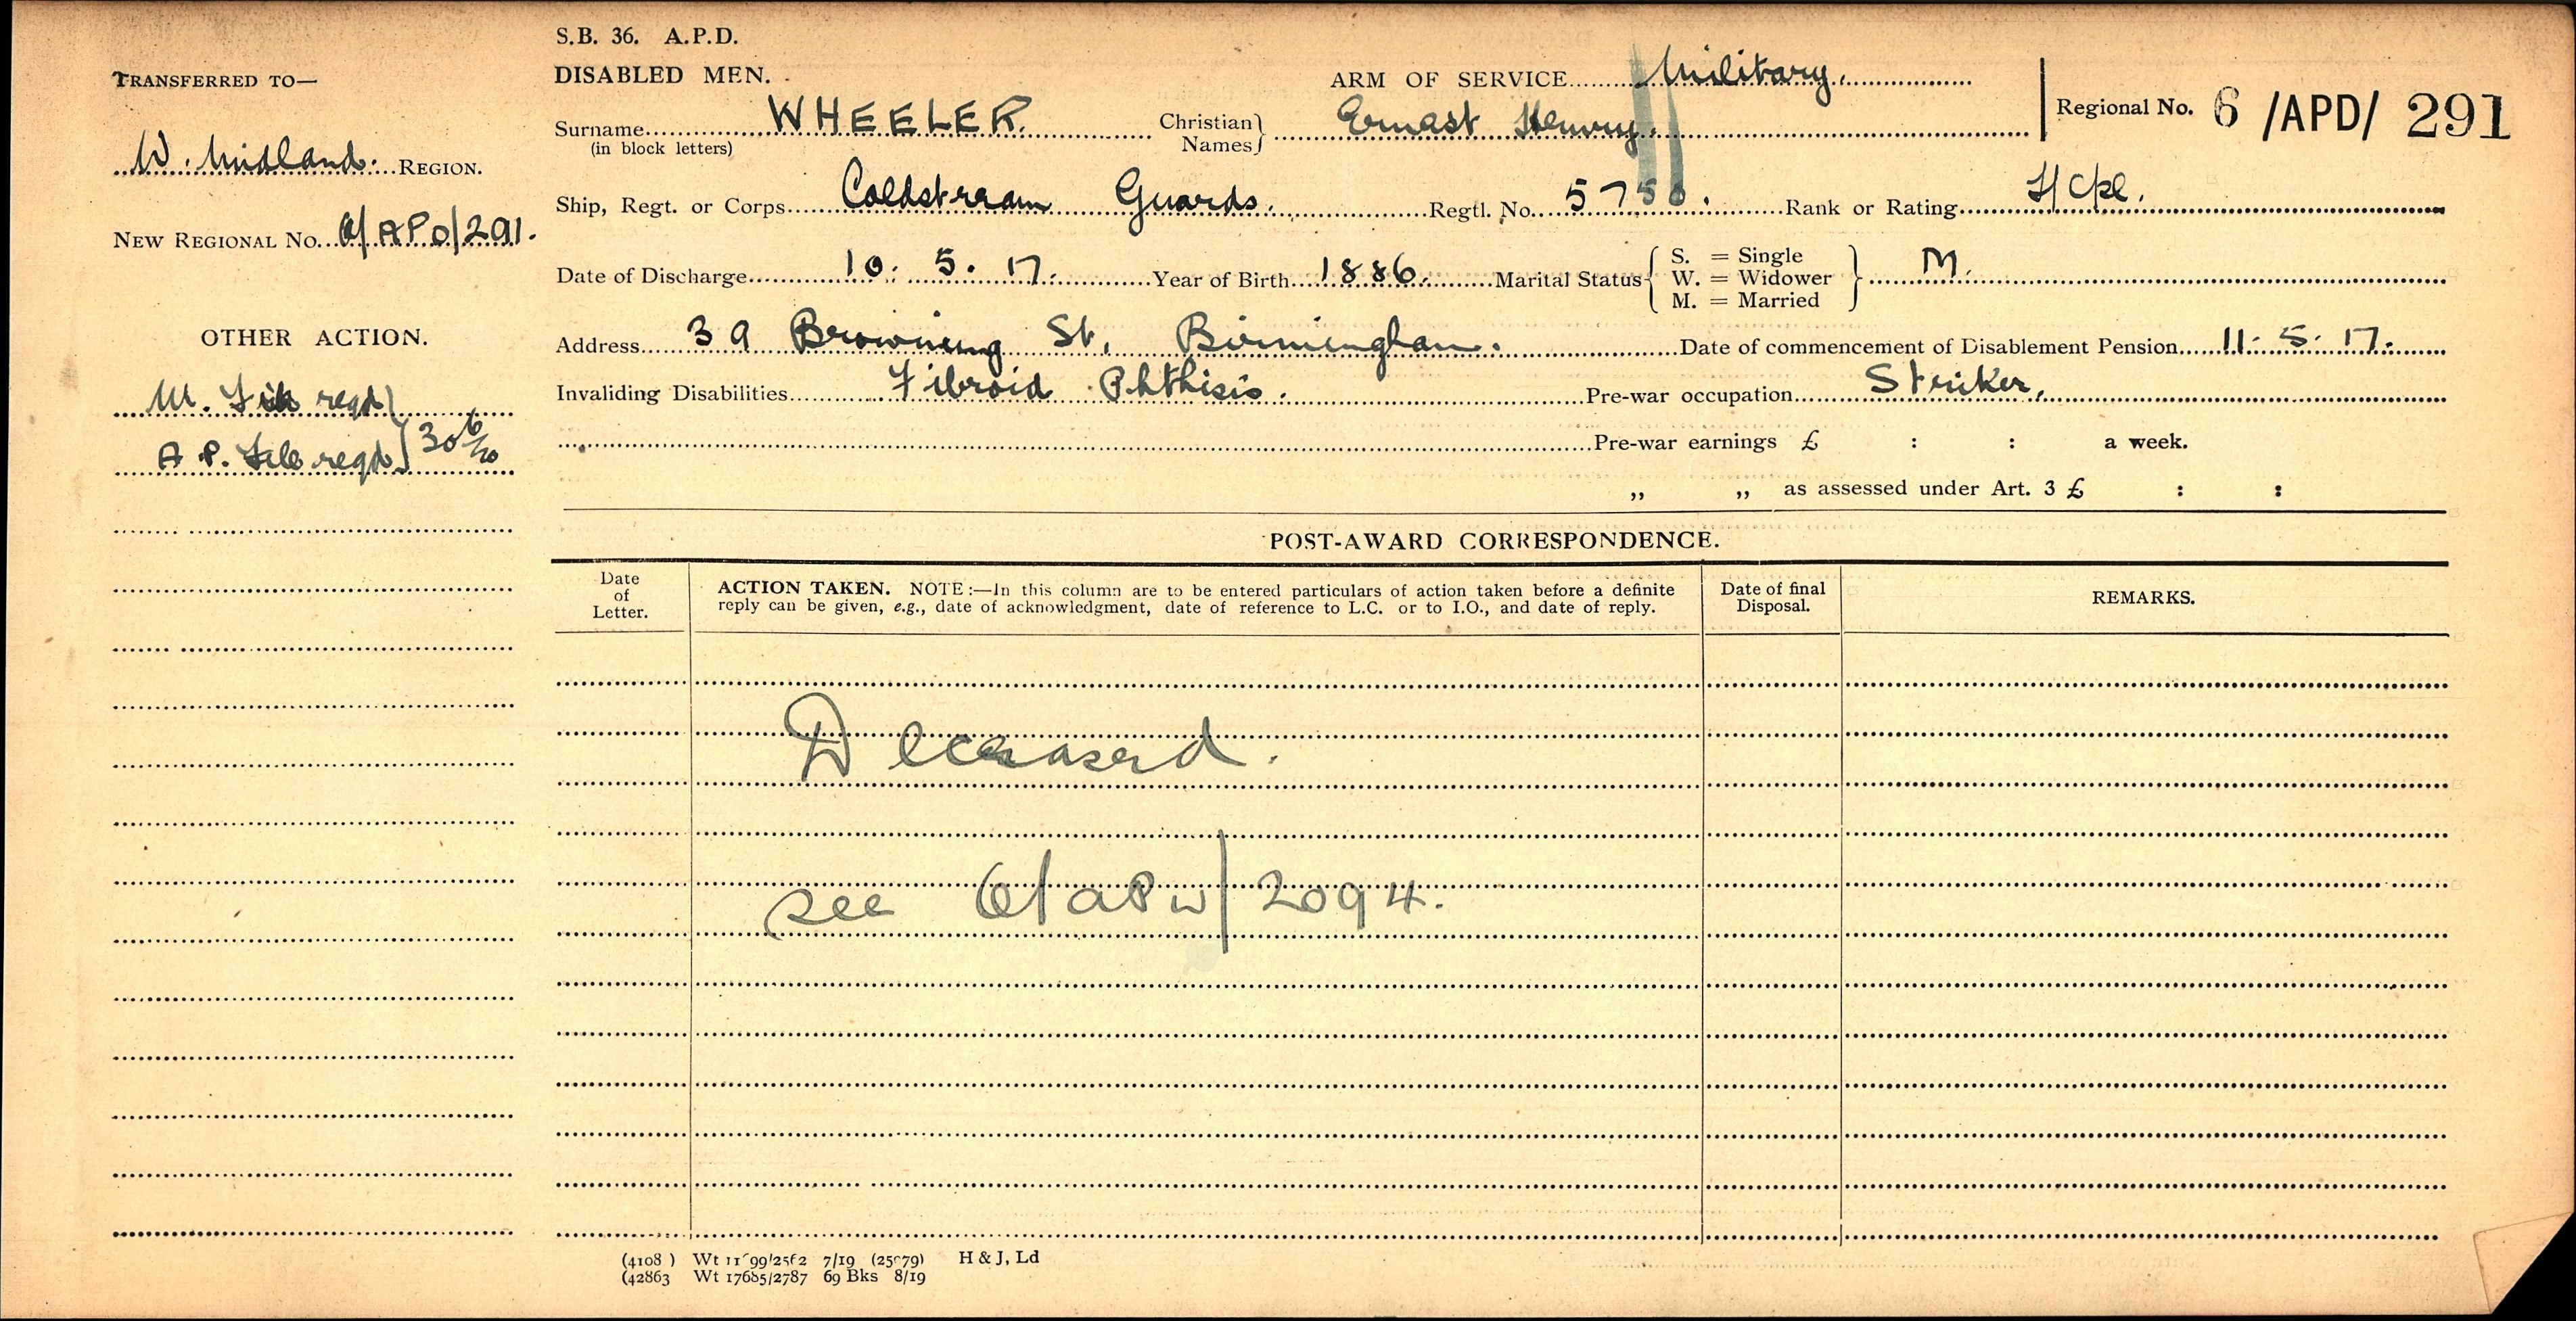 S.B. 36. A.P.D.
DISABLED MEN.
TRANSFERRED TO—
W. Midland. REGION.
NEW REGIONAL No. 6/APD/291.
OTHER ACTION.
M. File reqd
A P. File reqd } 30/6/20
ARM OF SERVICE Military.
Regional No. 6 /APD/ 291
Surname WHEELER. Christian Names } Ernest Henry.
(in block letters)
Ship, Regt. or Corps Coldstream Guards. Regtl. No. 5758. Rank or Rating L/Cpl.
Date of Discharge 10. 5. 17. Year of Birth 1886. Marital Status { S. = Single W. = Widower M. = Married } M.
Address 39 Browning St, Birmingham. Date of commencement of Disablement Pension 11. 5. 17.
Invaliding Disabilities Fibroid Phthisis. Pre-war occupation Striker.
Pre-war earnings £ : : a week.
„ „ as assessed under Art. 3 £ : :
POST-AWARD CORRESPONDENCE.
Date of Letter.
ACTION TAKEN. NOTE:—In this column are to be entered particulars of action taken before a definite
reply can be given, e.g., date of acknowledgment, date of reference to L.C. or to I.O., and date of reply.
Date of final Disposal.
REMARKS.
Deceased.
see 6/APW/2094.
(4108 ) Wt 7/19 H & J, Ld
(42863 Wt 17685/2787 69 Bks 8/19